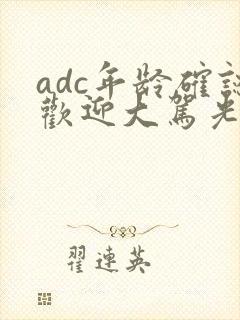 adc年龄確認
歡迎大駕光
翟連英